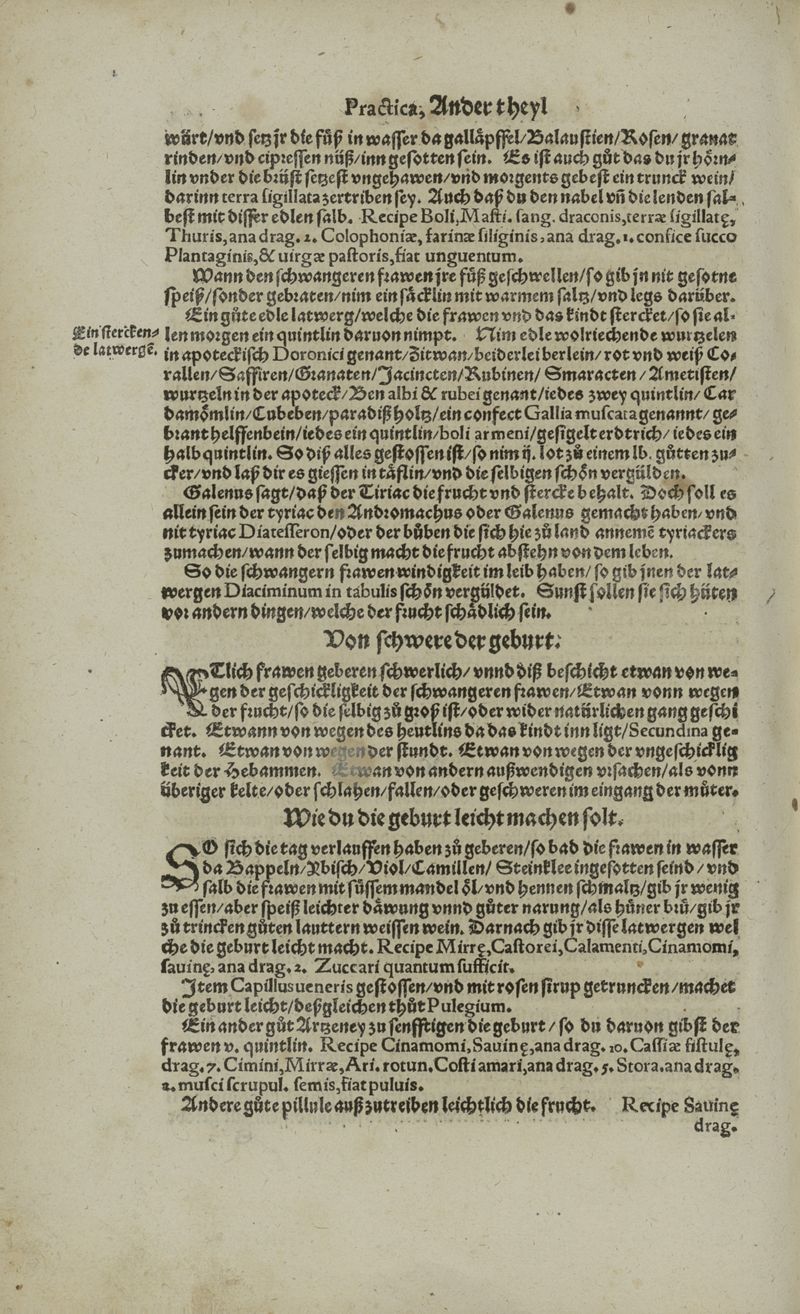 Practica, Ander theyl
würt/vnd setz jr die füß in wasser da galläpffel/Balaustien/Rosen/granat
rinden/vnd cipressen nüß/inn gesotten sein. Es ist auch gůt das du jr hörn⸗
lin vnder die brüst setzest vngehawen/vnd morgents gebest ein trunck wein/
darinn terra sigillata zertriben sey. Auch daß du den nabel vñ die lenden sal⸗
best mit disser edlen salb. Recipe Boli, Masti. sang. draconis, terræ sigillatę,
Thuris, ana drag. 2. Colophoniæ, farinæ siliginis, ana drag. 1. confice succo
Plantaginis, & uirgæ pastoris, fiat unguentum.
Wann den schwangeren frawen jre füß geschwellen/so gib jn nit gesotne
speiß/sonder gebraten/nim ein säcklin mit warmem saltz/vnd legs darüber.
Ein gůte edle latwerg/welche die frawen vnd das kindt stercket/so sie al⸗
Ein stercken⸗
de latwergē.
len morgen ein quintlin daruon nimpt. Nim edle wolriechende wurtzelen
in apoteckisch Doronici genant/Zitwan/beiderlei berlein/rot vnd weiß Co⸗
rallen/Saffiren/Granaten/Jacincten/Rubinen/Smaracten/Ametisten/
wurtzeln in der apoteck/Ben albi & rubei genant/iedes zwey quintlin/Car
damömlin/Cubeben/paradiß holtz/ein confect Gallia muscata genannt/ge⸗
brant helffenbein/iedes ein quintlin/boli armeni/gesigelt erdtrich/iedes ein
halb quintlin. So diß alles gestossen ist/so nim ij. lot zů einem lb. gůtten zu⸗
cker/vnd laß dir es giessen in täflin/vnd die selbigen schön vergülden.
Galenus sagt/daß der Tiriac die frucht vnd stercke behalt. Doch soll es
allein sein der tyriac den Andromachus oder Galenus gemacht haben/vnd
nit tyriac Diatesseron/oder der bůben die sich hie zů land annemē tyriackers
zumachen/wann der selbig macht die frucht abstehn von dem leben.
So die schwangern frawen windigkeit im leib haben/so gib jnen der lat⸗
wergen Diaciminum in tabulis schön vergüldet. Sunst sollen sie sich hüten
vor andern dingen/welche der frucht schädlich sein.
Von schwere der geburt.
ETlich frawen geberen schwerlich/vnnd diß beschicht etwan von we⸗
gen der geschickligkeit der schwangeren frawen/Etwan vonn wegen
der frucht/so die selbig zů groß ist/oder wider natürlichen gang geschi
cket. Etwann von wegen des heutlins da das kindt inn ligt/Secundina ge⸗
nant. Etwan von wegen der stundt. Etwan von wegen der vngeschicklig
keit der Hebammen. Etwan von andern außwendigen vrsachen/als vonn
überiger kelte/oder schlahen/fallen/oder geschweren im eingang der můter.
Wie du die geburt leicht machen solt.
SO sich die tag verlauffen haben zů geberen/so bad die frawen in wasser
da Bappeln/Ybisch/Viol/Camillen/Steinklee ingesotten seind/vnd
salb die frawen mit süssem mandel öl/vnd hennen schmaltz/gib jr wenig
zu essen/aber speiß leichter däwung vnnd gůter narung/als hüner brü/gib jr
zů trincken gůten lauttern weissen wein. Darnach gib jr disse latwergen wel
che die geburt leicht macht. Recipe Mirrę, Castorei, Calamenti, Cinamomi,
sauinę, ana drag. 2. Zuccari quantum sufficit.
Item Capillus ueneris gestossen/vnd mit rosen sirup getruncken/machet
die geburt leicht/deßgleichen thůt Pulegium.
Ein ander gůt Artzeney zu senfftigen die geburt/so du daruon gibst der
frawen v. quintlin. Recipe Cinamomi, Sauinę, ana drag. 10. Cassiæ fistulę,
drag. 7. Cimini, Mirræ, Ari. rotun. Costi amari, ana drag. 5. Stora. ana drag.
2. musci scrupul. semis, fiat puluis.
Andere gůte pillule auß zutreiben leichtlich die frucht. Recipe Sauinę
drag.